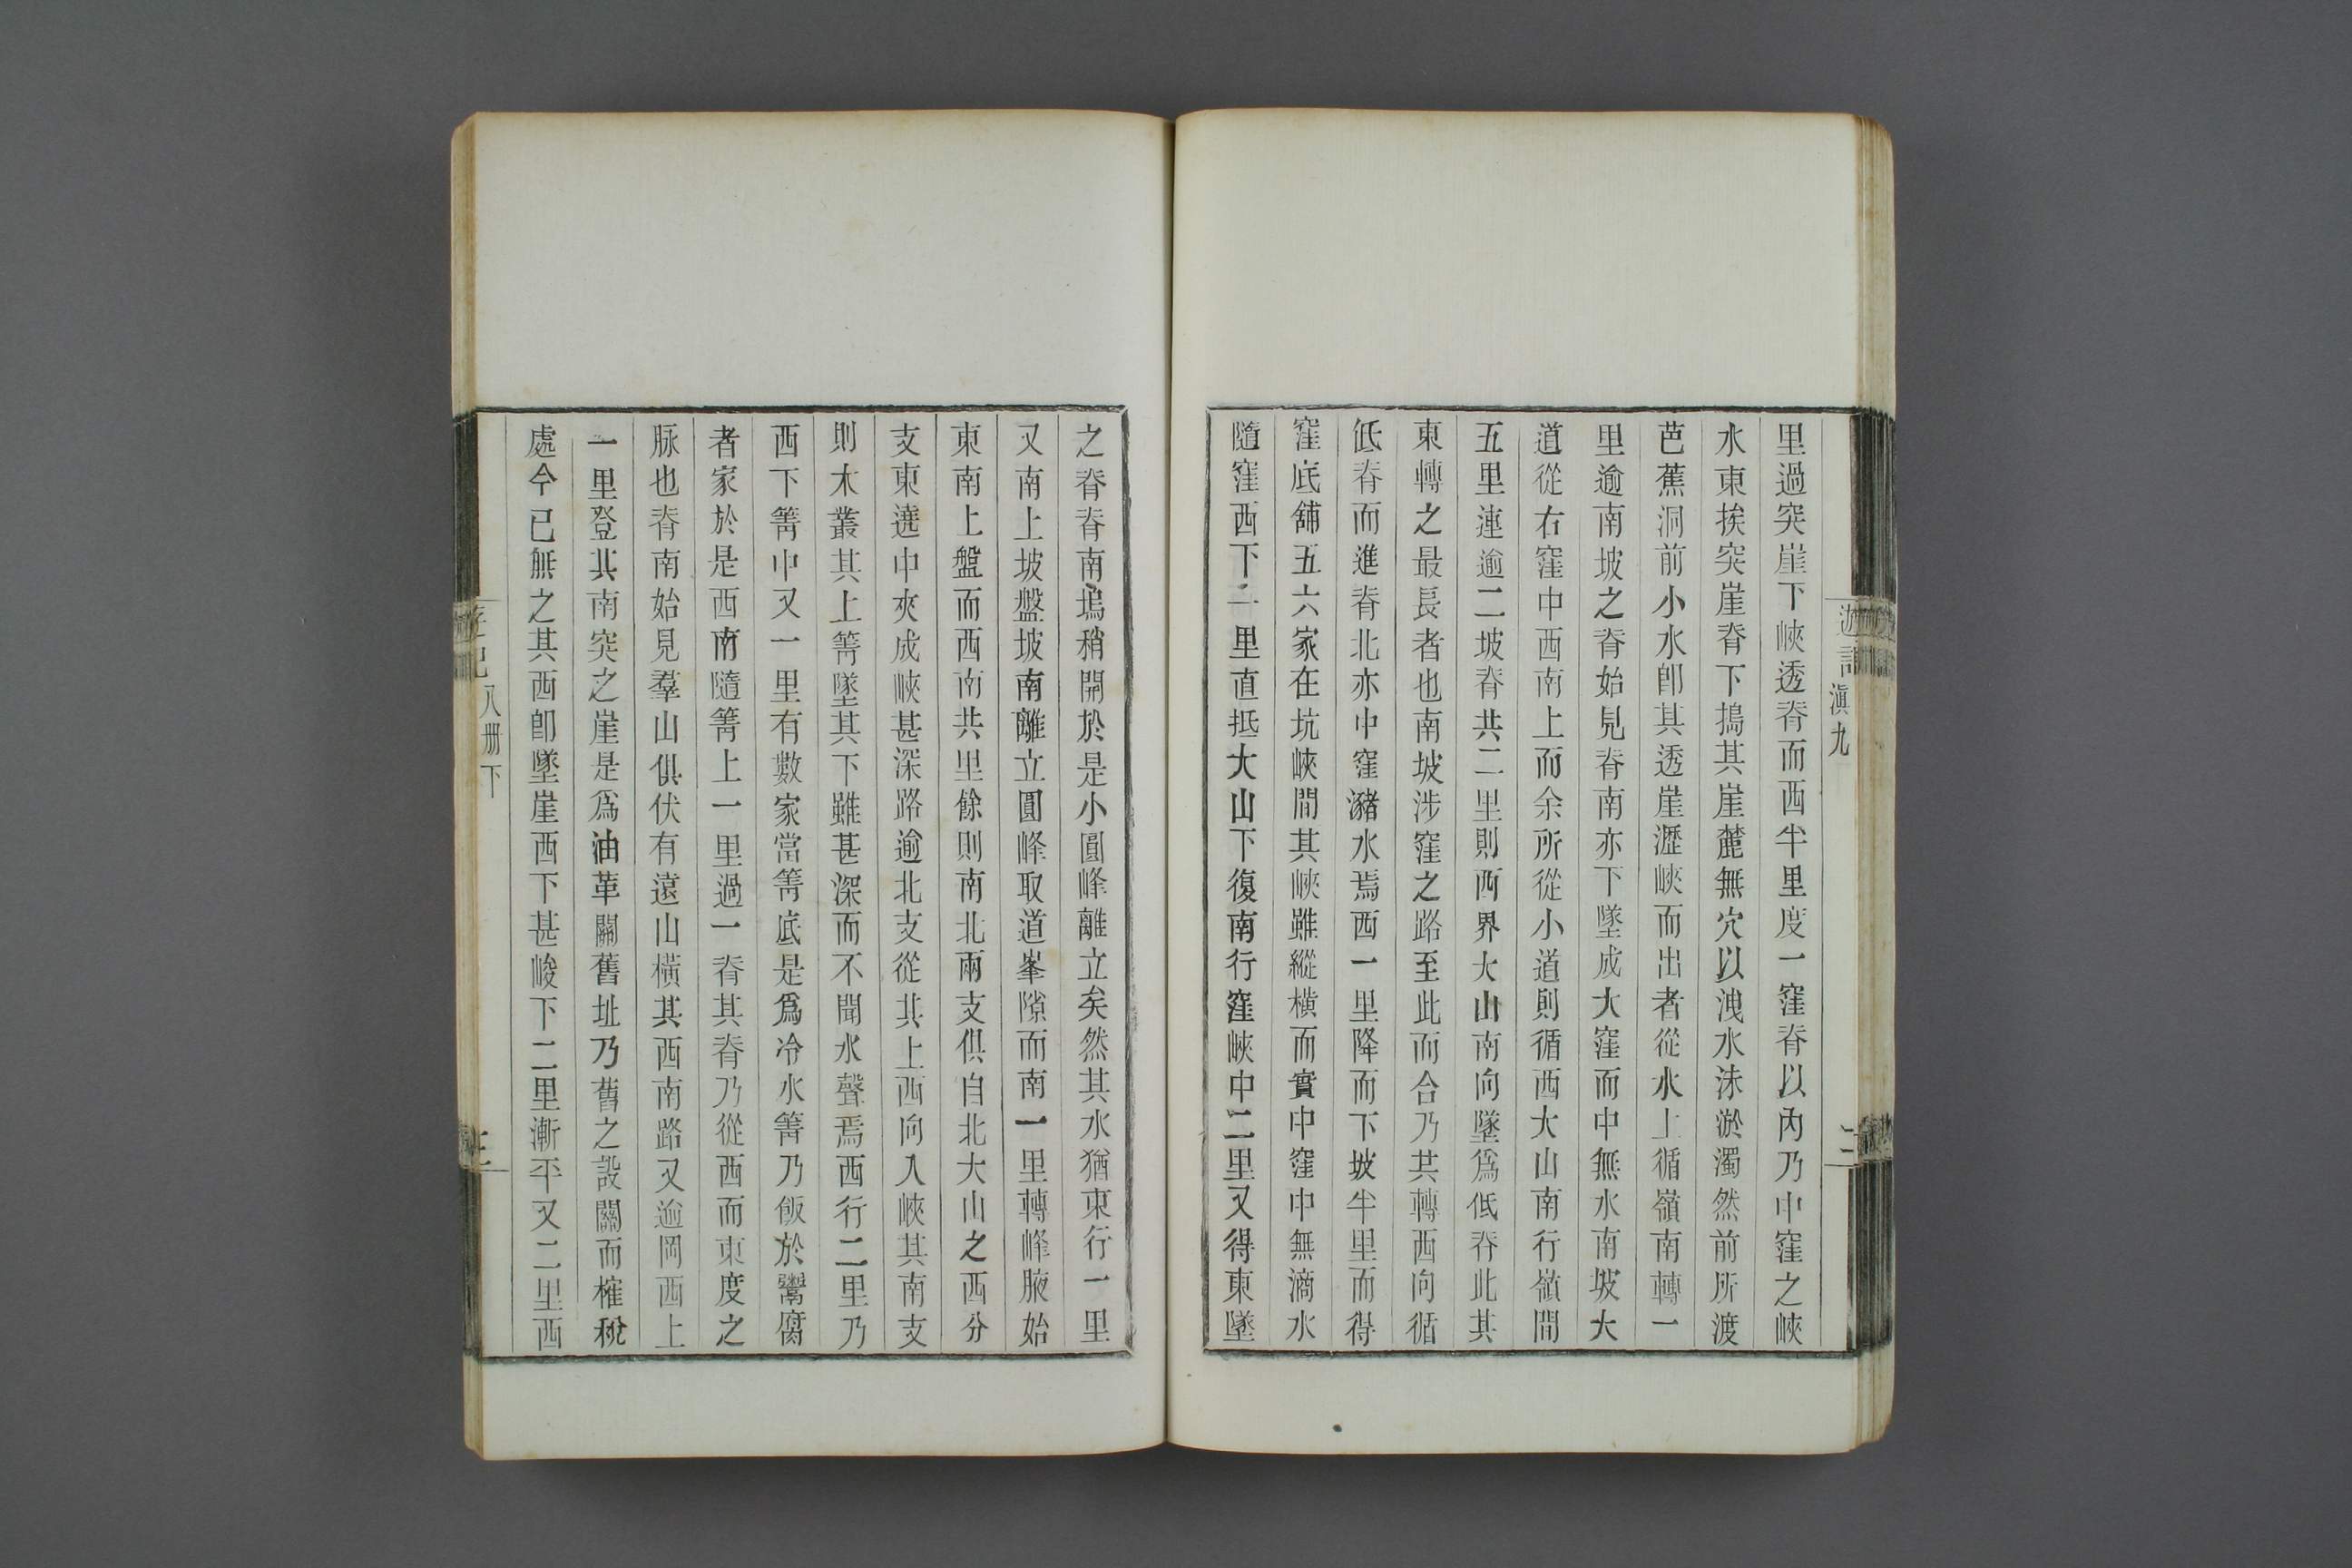 遊記 滇九 二
里過突崖下峽透脊而西半里度一窪脊以內乃中窪之峽
水東挨突崖脊下搗其崖麓無穴以洩水沫淤濁然前所渡
芭蕉洞前小水卽其透崖瀝峽而出者從水上循嶺南轉一
里逾南坡之脊始見脊南亦下墜成大窪而中無水南坡大
道從右窪中西南上而余所從小道則循西大山南行嶺間
五里連逾二坡脊共二里則西界大山南向墜爲低脊此其
東轉之最長者也南坡涉窪之路至此而合乃共轉西向循
低脊而進脊北亦中窪瀦水焉西一里降而下坡半里而得
窪底舖五六家在坑峽間其峽雖縱橫而實中窪中無滴水
隨窪西下二里直抵大山下復南行窪峽中二里又得東墜
之脊脊南塢稍開於是小圓峰離立矣然其水猶東行一里
又南上坡盤坡南離立圓峰取道峯隙而南一里轉峰腋始
東南上盤而西南共里餘則南北兩支俱自北大山之西分
支東遶中夾成峽甚深路逾北支從其上西向入峽其南支
則木叢其上箐墜其下雖甚深而不聞水聲焉西行二里乃
西下箐中又一里有數家當箐底是爲冷水箐乃飯於鬻腐
者家於是西南隨箐上一里過一脊其脊乃從西而東度之
脉也脊南始見羣山俱伏有遠山橫其西南路又逾岡西上
一里登其南突之崖是爲油革關舊址乃舊之設關而榷稅
處今已無之其西卽墜崖西下甚峻下二里漸平又二里西
八册下